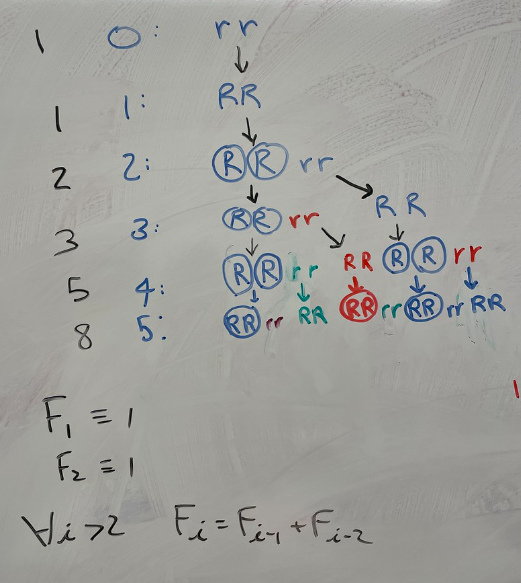 1 0: rr
1 1: RR
2 2: RR rr
RR
3 3: RR rr
RR RR rr
5 4: RR rr
8 5: RR rr RR RR rr RR rr RR
F₁ ≡ 1
F₂ ≡ 1
∀i>2 Fᵢ = Fᵢ₋₁ + Fᵢ₋₂